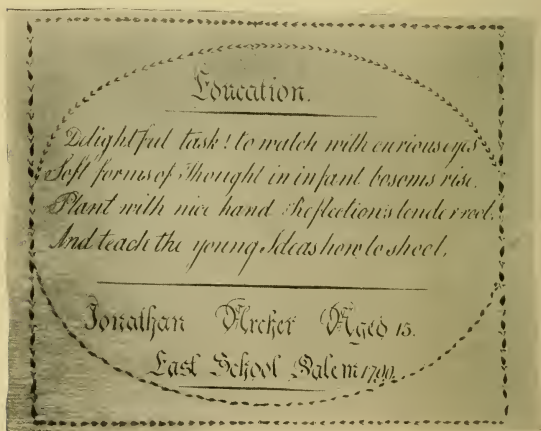 Education.
Delightful task! to watch with curious eyes
Soft forms of Thought in infant bosoms rise.
Plant with nice hand Reflection's tender root.
And teach the young Ideas how to shoot.
Jonathan Archer Aged 15.
East School Salem